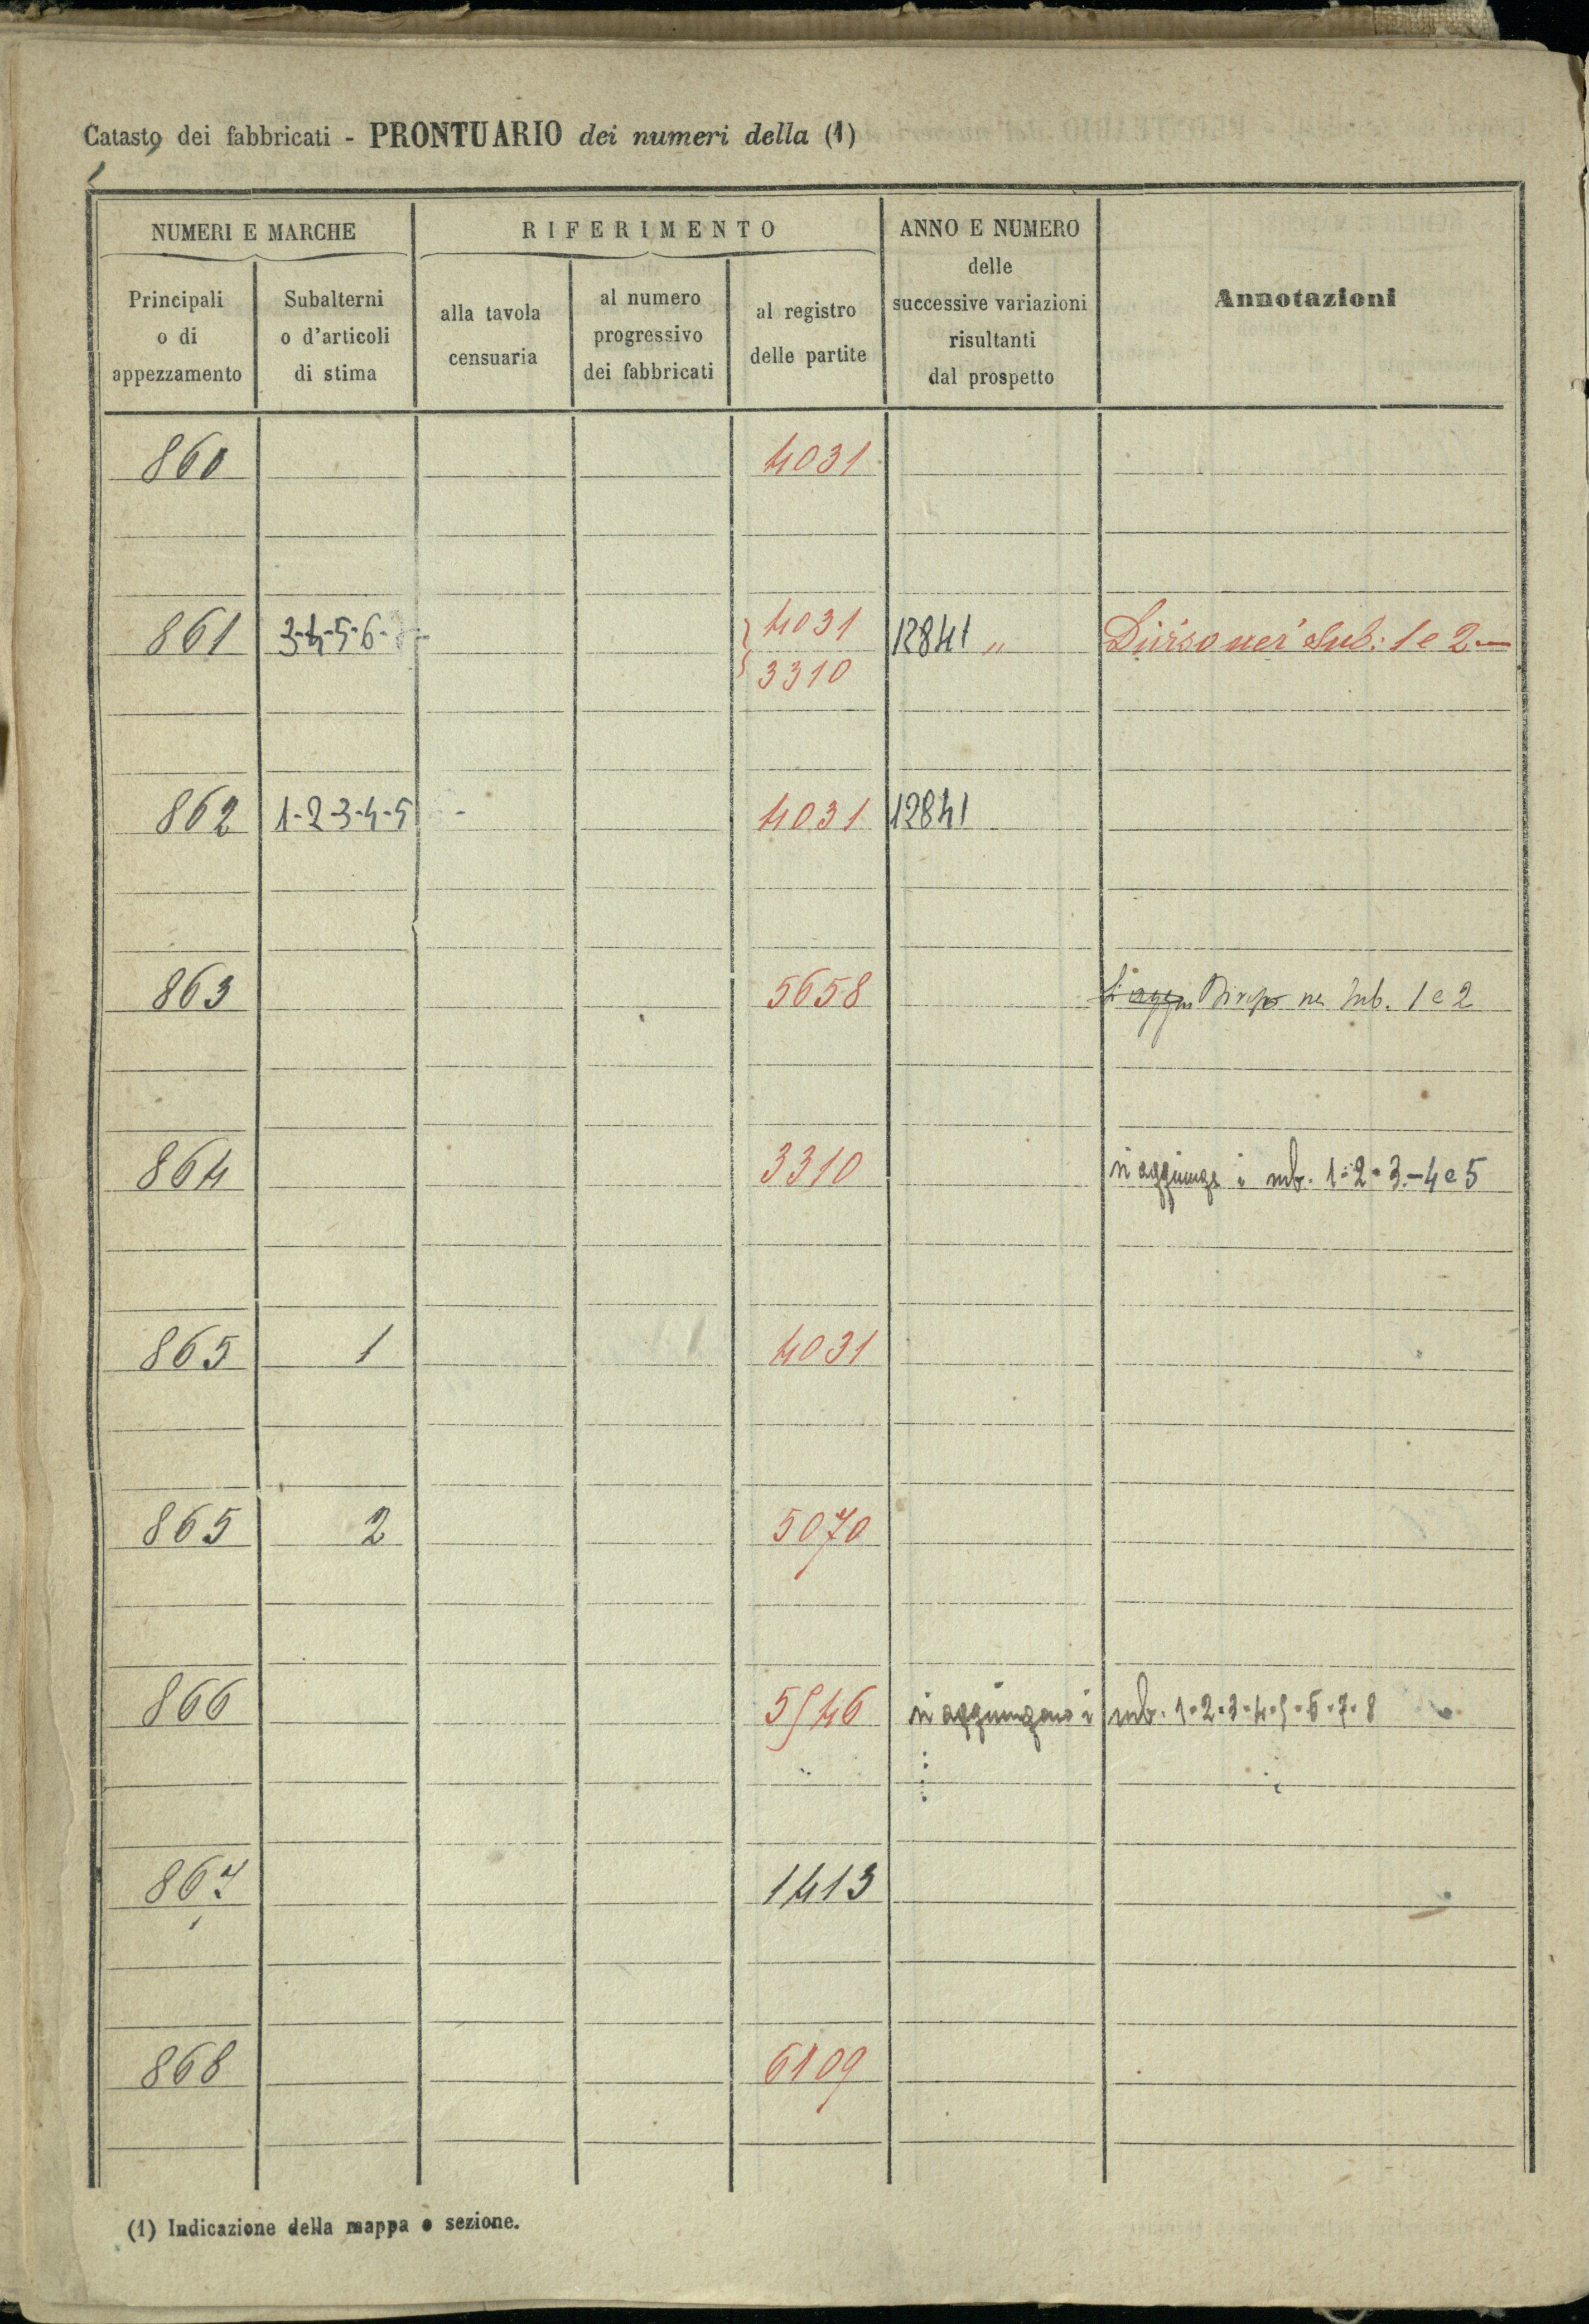 Catasto dei fabbricati - PRONTUARIO dei numeri della (1)
NUMERI E MARCHE
RIFERIMENTO
ANNO E NUMERO
delle
successive variazioni
risultanti
dal prospetto
Annotazioni
Principali
o di
appezzamento
Subalterni
o d'articoli
di stima
alla tavola
censuaria
al numero
progressivo
dei fabbricati
al registro
delle partite
860 4031
861 3-4-5-6- 4031 12841 " Diviso nei Sub: 1 e 2 —
3310
862 1-2-3-4-5 4031 12841
863 5658 Diviso nei sub. 1 e 2
864 3310 si aggiunge i sub. 1-2-3-4 e 5
865 1 4031
865 2 5070
866 5546 si aggiungono i sub. 1-2-3-4-5-6-7-8
867 1413
868 6109
(1) Indicazione della mappa o sezione.